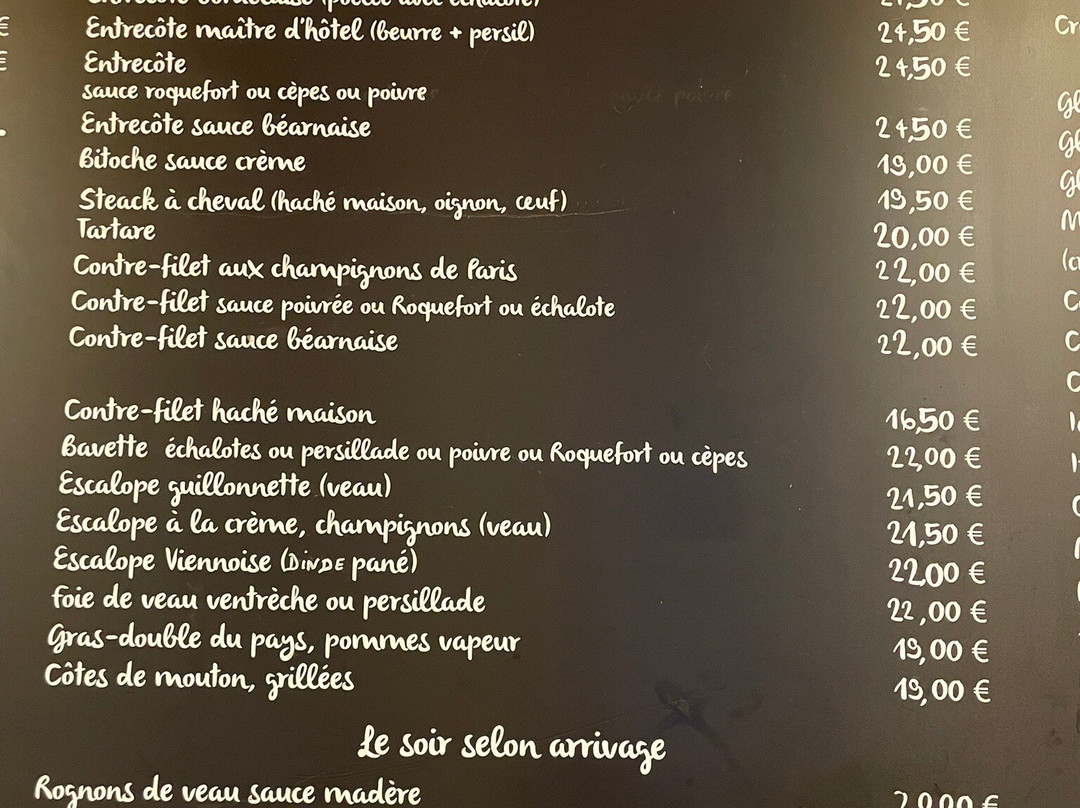 Entrecôte maître d'hôtel (beurre + persil) 24,50 €
Entrecôte 24,50 €
sauce roquefort ou cèpes ou poivre
Entrecôte sauce béarnaise 24,50 €
Bitoche sauce crème 19,00 €
Steack à cheval (haché maison, oignon, œuf) 19,50 €
Tartare 20,00 €
Contre-filet aux champignons de Paris 22,00 €
Contre-filet sauce poivrée ou Roquefort ou échalote 22,00 €
Contre-filet sauce béarnaise 22,00 €
Contre-filet haché maison 16,50 €
Bavette échalotes ou persillade ou poivre ou Roquefort ou cèpes 22,00 €
Escalope guillonnette (veau) 21,50 €
Escalope à la crème, champignons (veau) 21,50 €
Escalope Viennoise (DINDE pané) 22,00 €
foie de veau ventrèche ou persillade 22,00 €
Gras-double du pays, pommes vapeur 19,00 €
Côtes de mouton, grillées 19,00 €
Le soir selon arrivage
Rognons de veau sauce madère